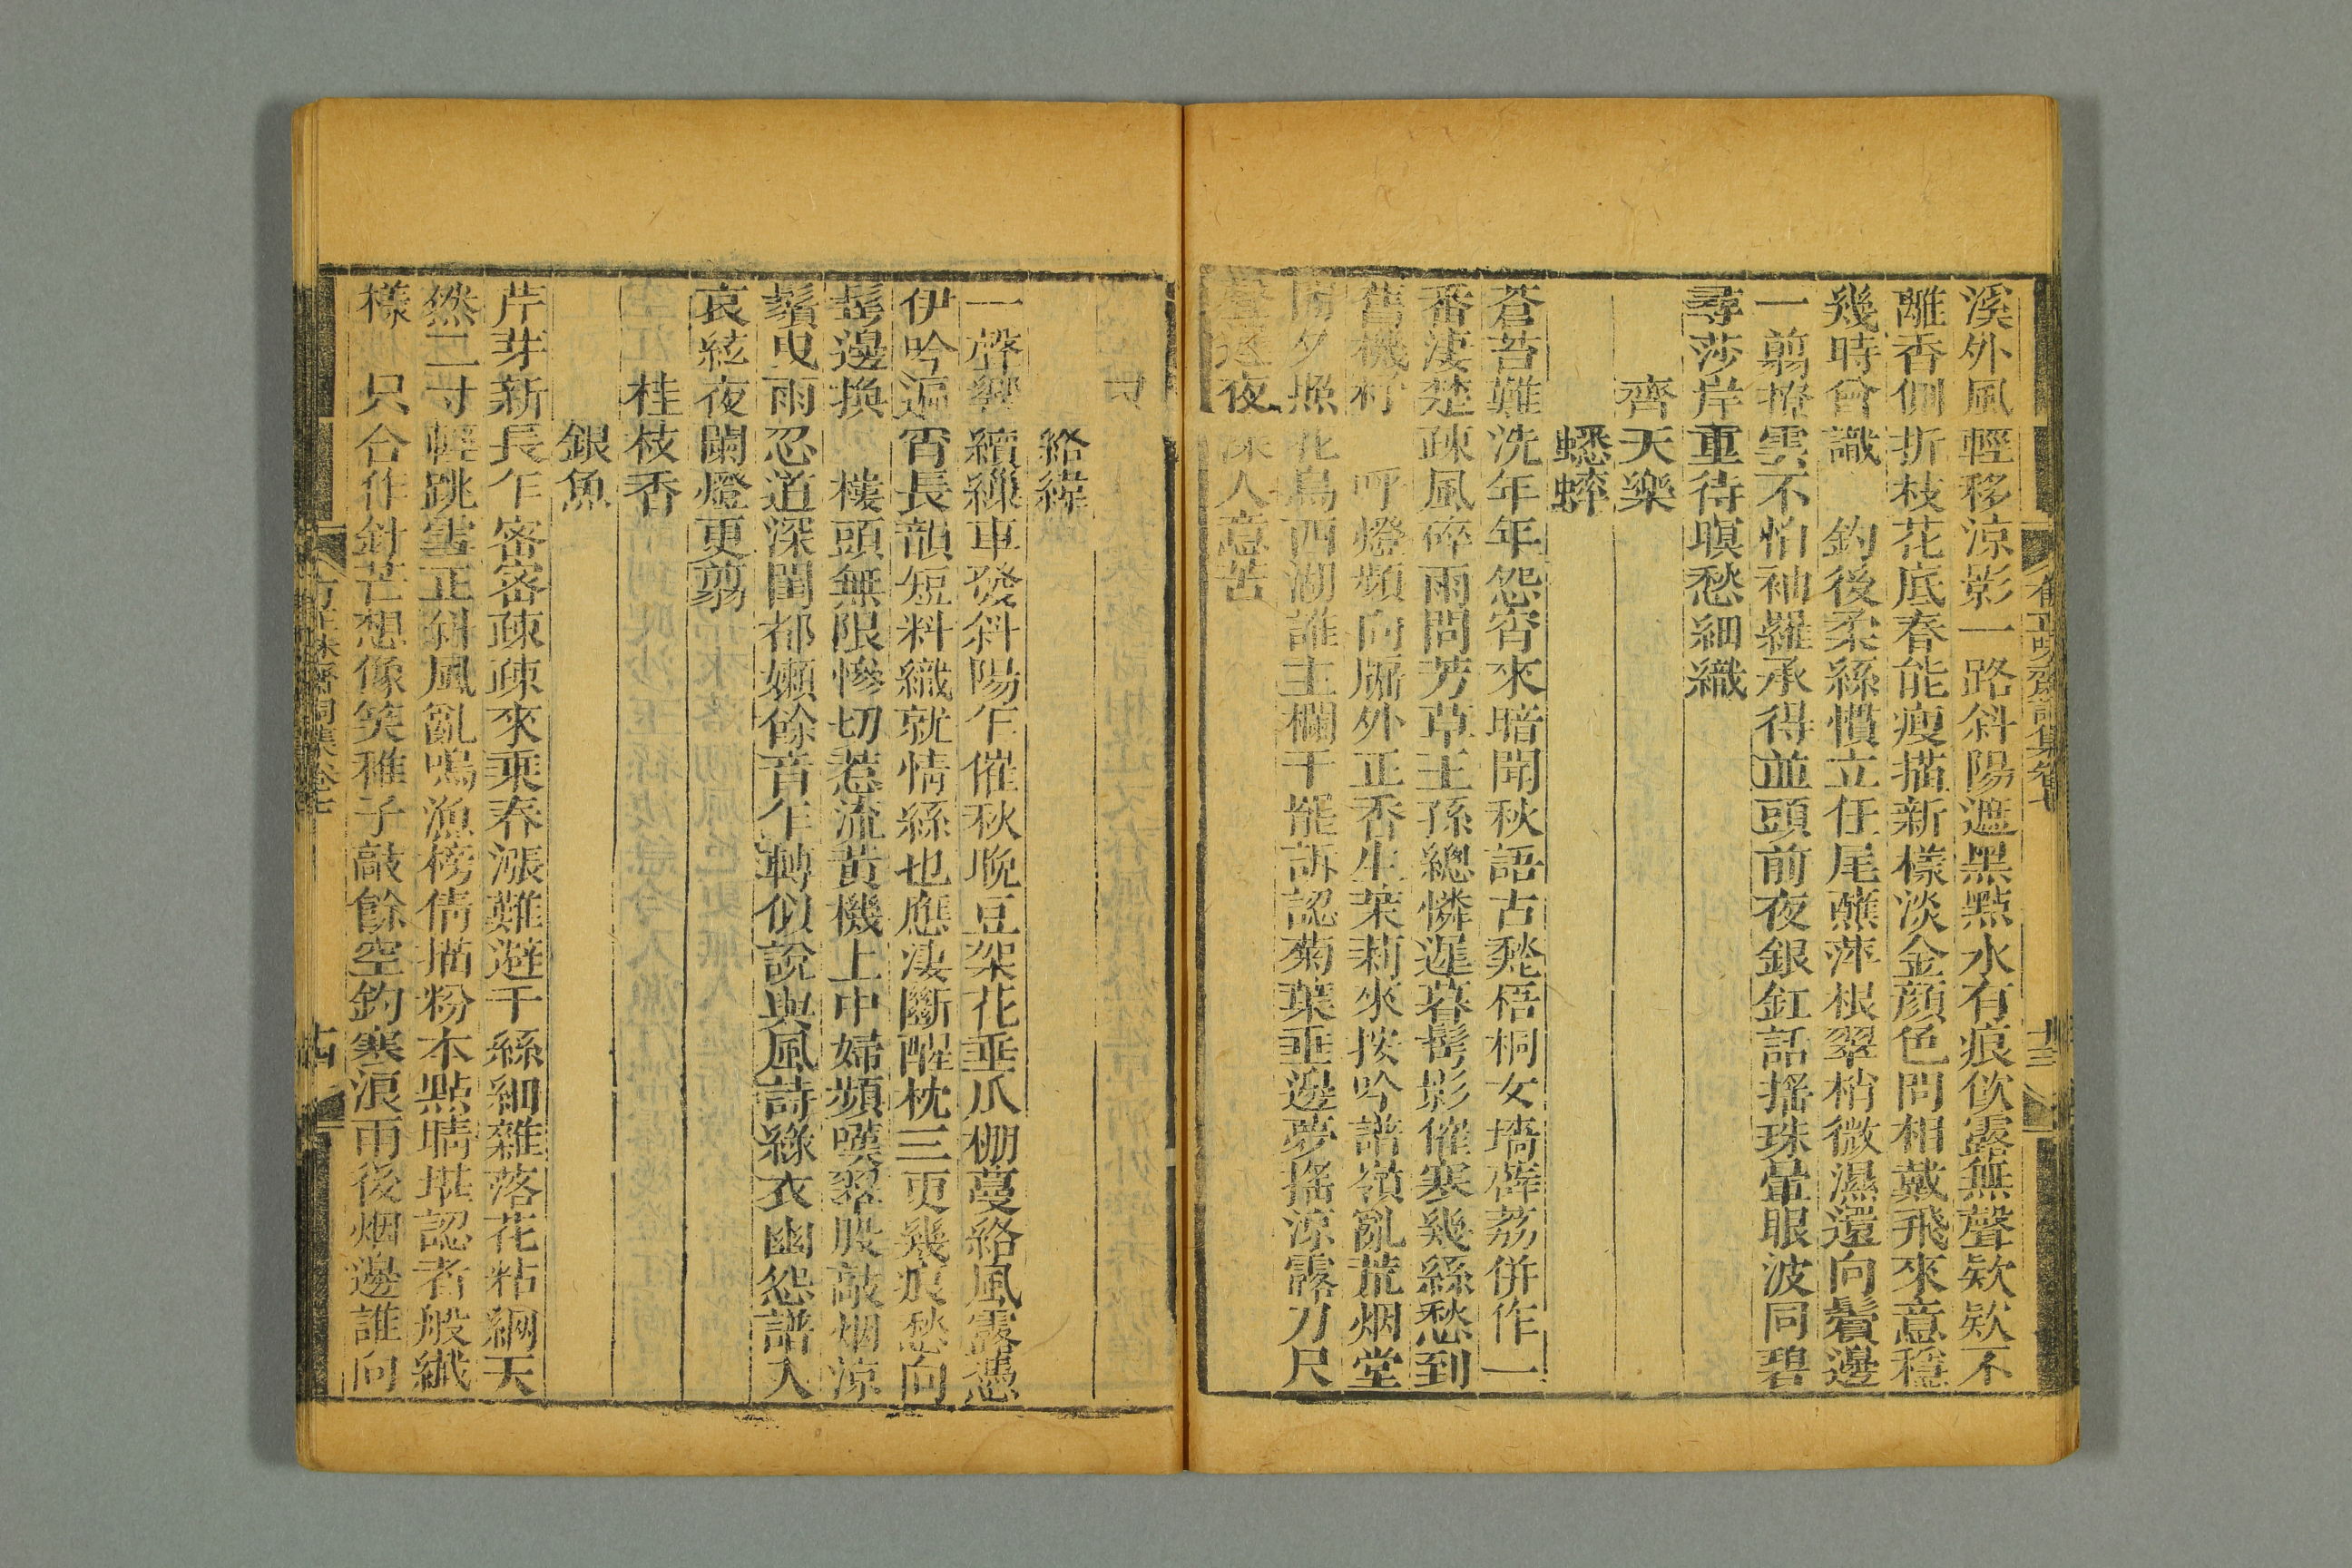 溪外風輕移涼影一路斜陽遮黑點水有痕飲露無聲欵欵不
離香側折枝花底春能瘦描新樣淡金顏色問相戴飛來意穩
幾時曾識　釣後柔絲慣立任尾蘸萍根翠梢微濕還向鬢邊
一翦撩雲不怕袖羅承得並頭前夜銀釭話搖珠暈眼波同碧
尋莎岸重待暝愁細織
齊天樂
蟋蟀
蒼苔難洗年年怨宵來暗聞秋語古甃梧桐女墻薜荔併作一
番淒楚疎風碎雨問芳草王孫總憐遲暮鬢影催寒幾絲愁到
舊機杼　呼燈頻向廊外正香生茉莉來按吟譜嶺亂荒烟堂
閒夕照花鳥西湖誰主欄干罷訴認菊葉亜邊夢搖涼露刀尺
聲逐夜深人意苦
有正味齋詞集卷七
十三
絡緯
一聲響續繅車發斜陽乍催秋晚豆架花垂爪棚蔓絡風露慿
伊吟遍宵長韻短料織就情絲也應淒斷醒枕三更幾痕愁向
髩邊換　樓頭無限慘切惹流黃機上中婦頻嘆翠股敲烟涼
鬚曳雨忍道深閨都嬾餘音乍轉似說與風詩綠衣幽怨譜入
哀絃夜闌燈更翦
桂枝香
銀魚
芹芽新長乍密密疎疎來乘春漲難避千絲細雜落花粘網天
然二寸輕跳雪正斜風亂鳴漁榜倩描粉本點睛堪認者般纎
樣　只合作針芒想像笑稚子敲餘空釣寒浪雨後烟邊誰向
有正味齋詞集卷七
十四